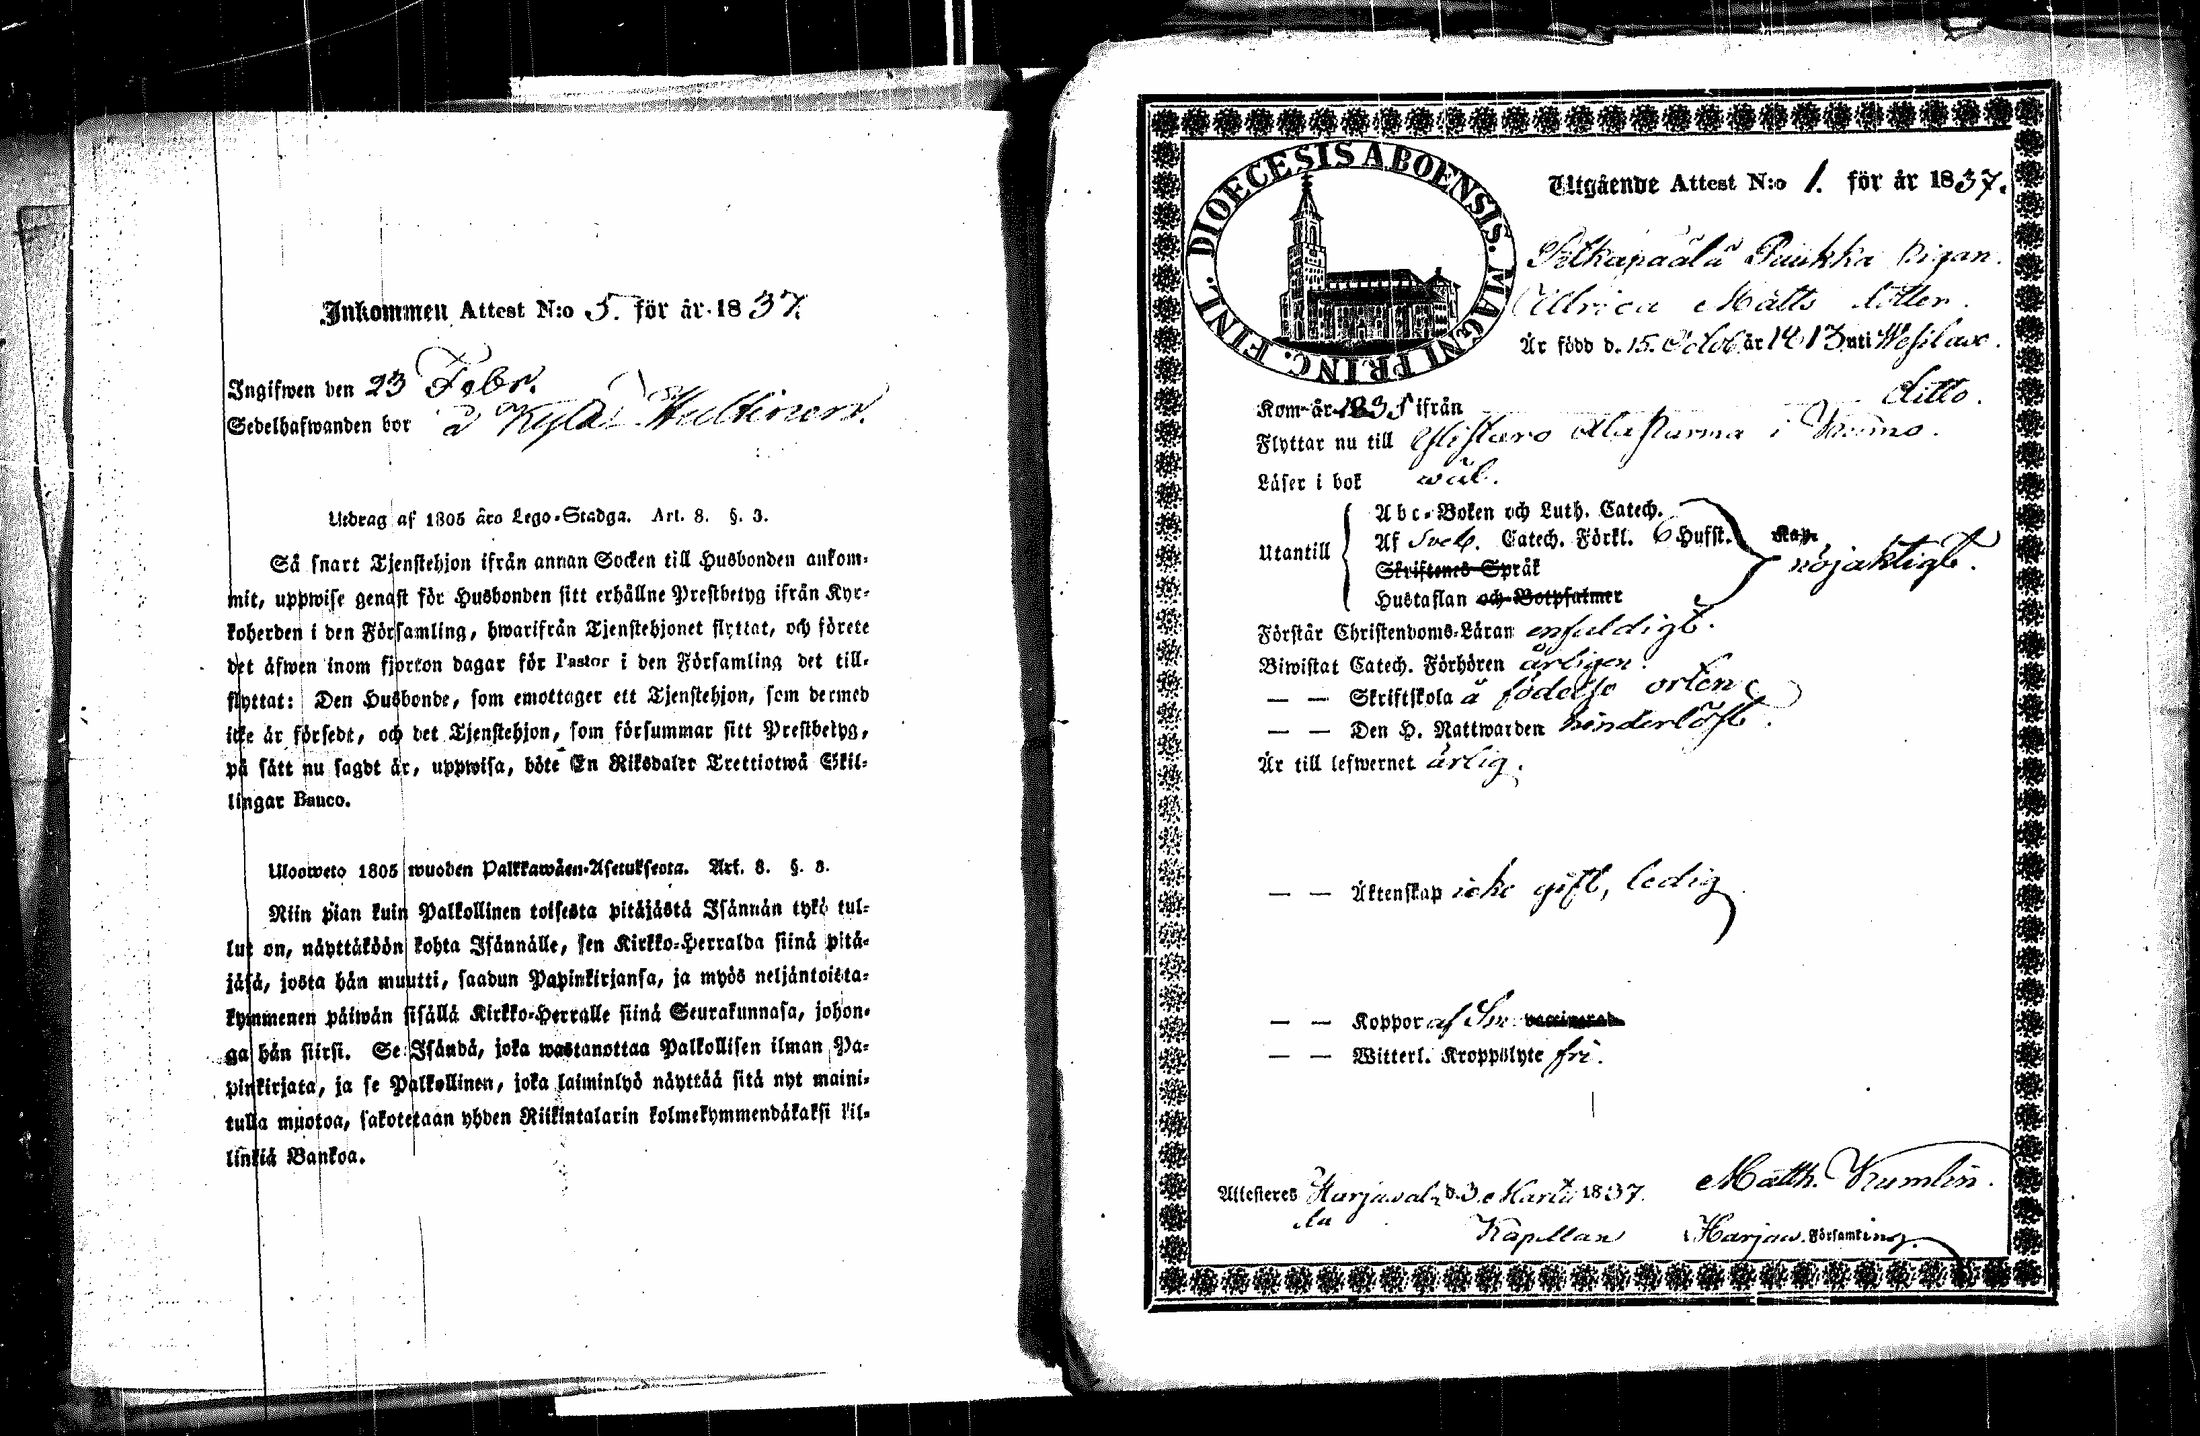 Inkommen Attest N:o 5. för år 1837.
Ingifwen den 23 Febr.
Sedelhafwanden bor å Kylä
Utdrag af 1805 års Lego-Stadga. Art. 8. §. 3.
Så snart Tjenstehjon ifrån annan Socken till Husbonden ankom-
mit, uppwise genast för Husbonden sitt erhållne Prestbetyg ifrån Kyr-
koherden i den Församling, hwarifrån Tjenstehjonet flyttat, och förete
det äfwen inom fjorton dagar för Pastor i den Församling det till-
flyttat: Den Husbonde, som emottager ett Tjenstehjon, som dermed
icke är försedt, och det Tjenstehjon, som försummar sitt Prestbetyg,
på sätt nu sagdt är, uppwisa, böte En Riksdaler Trettiotwå Skil-
lingar Banco.
Ulosweto 1805 wuoden Palkkawäen-Asetuksesta. Art. 8. §. 3.
Niin pian kuin Palkollinen toisesta pitäjästä Isännän tykö tul-
lut on, näyttäköön kohta Isännälle, sen Kirkko-Herralda siinä pitä-
jäsä, josta hän muutti, saadun Papinkirjansa, ja myös neljäntoista-
kymmenen päiwän sisällä Kirkko-Herralle siinä Seurakunnasa, johon-
ga hän siirsi. Se Isändä, joka wastanottaa Palkollisen ilman Pa-
pinkirjata, ja se Palkollinen, joka laiminlyö näyttää sitä nyt maini-
tulla muotoa, sakotetaan yhden Riikintalarin kolmekymmendäkaksi kil-
linkiä Bankoa.
DIOECESIS ABOENSIS. MAGNI PRINC. FINL.
Utgående Attest N:o 1. för år 1837.
Pukkha pigan
Ulrica Matts dotter.
Är född d. 15. Octob. år 1813 uti Wesilax.
Kom år 1835 ifrån ditto.
Flyttar nu till i Kumo.
Läser i bok wäl.
Utantill
Abc-Boken och Luth. Catech.
Af Sveb. Catech. Förkl. 6 Hufst. Kap.
Skriftenes Språk
nöjaktigt.
Hustaflan och Botpsalmer
Förstår Christendoms-Läran enfaldigt.
Biwistat Catech. Förhören årligen.
— — Skriftskola å födelse orten
— — Den H. Nattwarden hinderlöst.
Är till lefwernet ärlig.
— — Äktenskap icke gift, ledig
— — Koppor af vaccinerad
— — Witterl. Kroppslyte fri.
Attesteres Harjaval- d. 3 Martii 1837. Matth. Krumlin.
la
Kapellan Harjaw. Församling.